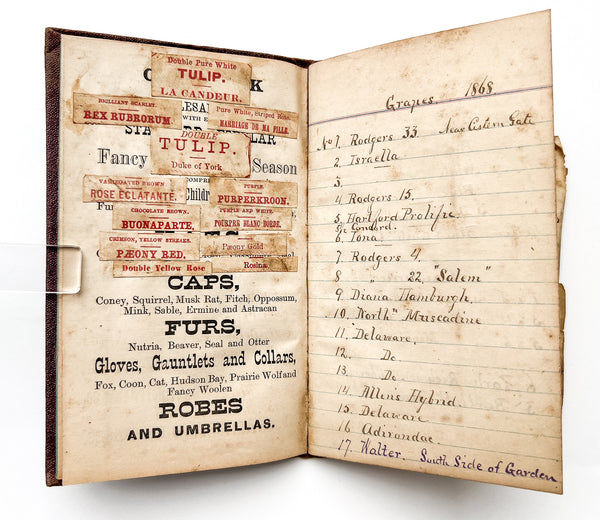 Double Pure White
TULIP.
LA CANDEUR.
BRILLIANT SCARLET.
REX RUBRORUM
Pure White, Striped Rose.
MARIAGE DE MA FILLE.
DOUBLE
TULIP.
Duke of York
Fancy
Season
VARIEGATED BROWN
ROSE ECLATANTE.
PURPLE.
PURPERKROON.
CHOCOLATE BROWN.
BUONAPARTE,
PURPLE AND WHITE.
POURPRE BLANC BORDE.
CRIMSON, YELLOW STREAKS.
PÆONY RED,
Pæony Gold
Double Yellow Rose
Rosina
CAPS,
Coney, Squirrel, Musk Rat, Fitch, Oppossum,
Mink, Sable, Ermine and Astracan
FURS,
Nutria, Beaver, Seal and Otter
Gloves, Gauntlets and Collars,
Fox, Coon, Cat, Hudson Bay, Prairie Wolf and
Fancy Woolen
ROBES
AND UMBRELLAS.
Grapes. 1868
No 1. Rodgers 33 Near Cistern Gate
2. Israella
3.
4 Rodgers 15.
5. Hartford Prolific
6. Iona.
7. Rodgers 4.
8 " 22, "Salem"
9. Diana Hamburgh,
10. North" Muscadine
11. Delaware.
12. Do
13. Do
14. Allens Hybrid.
15. Delaware
16 Adirondac.
17. Walter. South Side of Garden